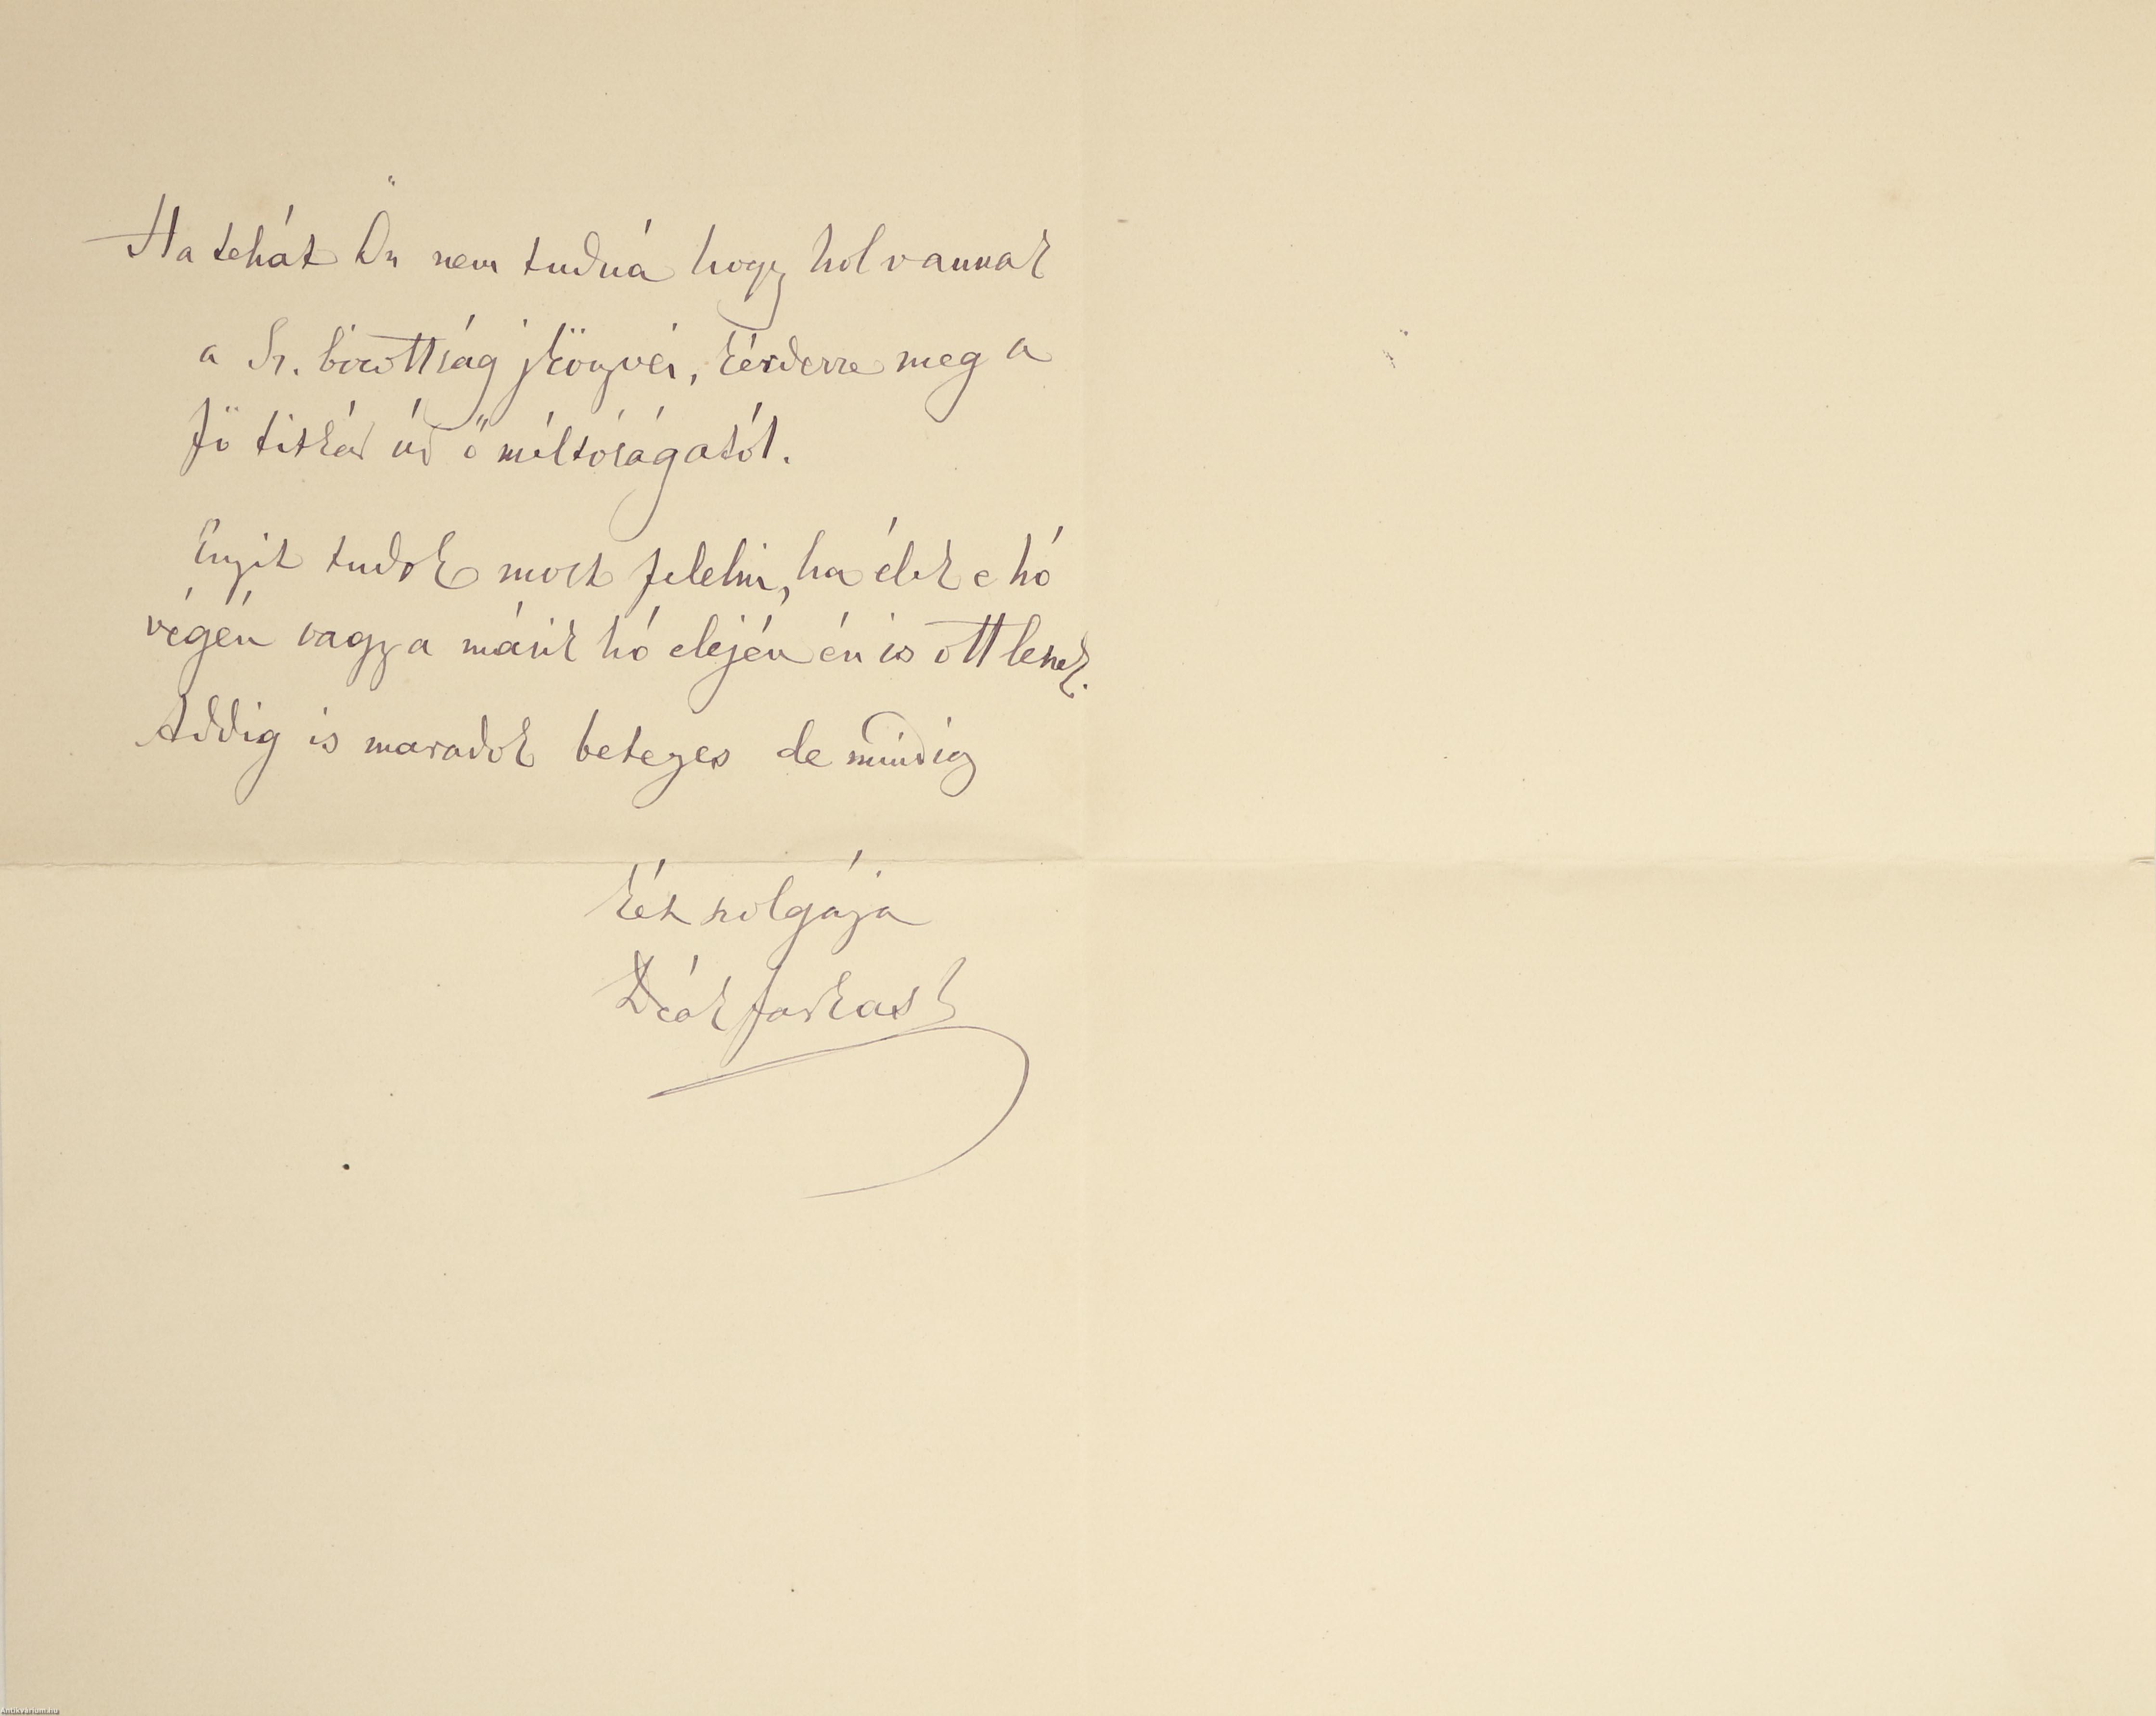 Ha tehát Ön nem tudná hogy hol vannak
a Sz. bizottság jkönyvei, kérdezze meg a
fő titkár úr ő méltóságától.
Enyit tudok most felelni, ha élek e hó
végén vagy a másik hó elején én is ott leszek.
Addig is maradok beteges de mindig
kész szolgája
Deák Farkas
Antikvarium.hu